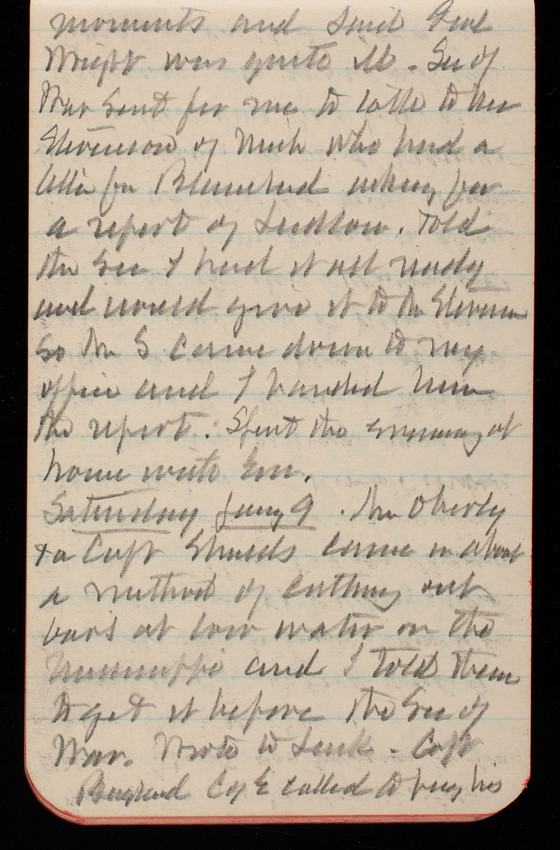 moments and said Genl
Wright was quite ill. Sec of
War sent for me to talk to Mr
Stevenson of Mich who had a
letter fm Blanchard asking for
a report of Ludlow. Told
the Sec I had it all ready
and would give it to Mr Stevenson
So Mr S came down to my
office and I handed him
the report. Spent the evening at
home with Em.
Saturday Jany 9. Mr Oberly
& a Capt Shields came in about
a method of cutting out
bars at low water on the
Mississippi and I told them
to get it before the Sec of
War. Wrote to Lusk. Capt
C of E called to pay his